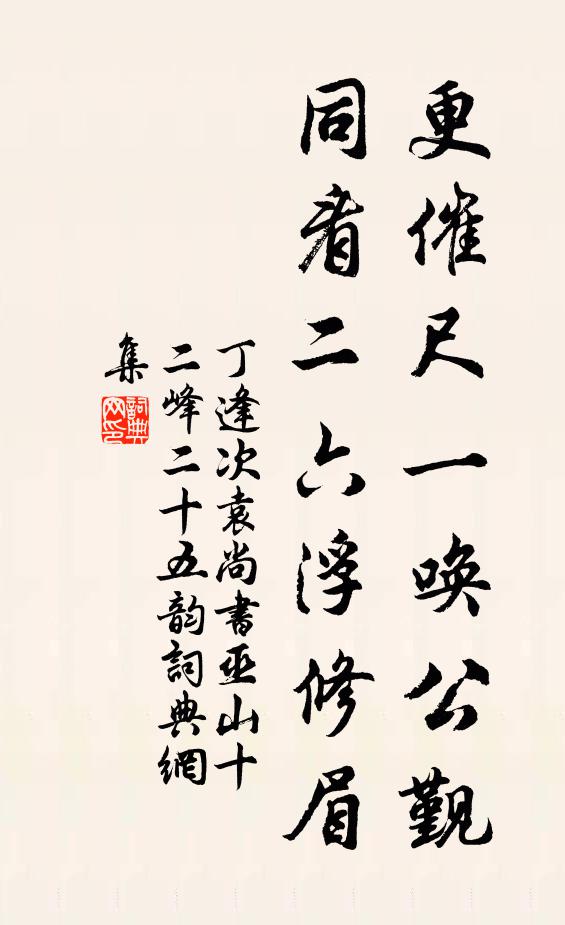 更催尺一唤公觐
同看二六浮修眉
丁逢次袁尚書巫山十
二峰二十五韵詞典網
集
詞典
网印